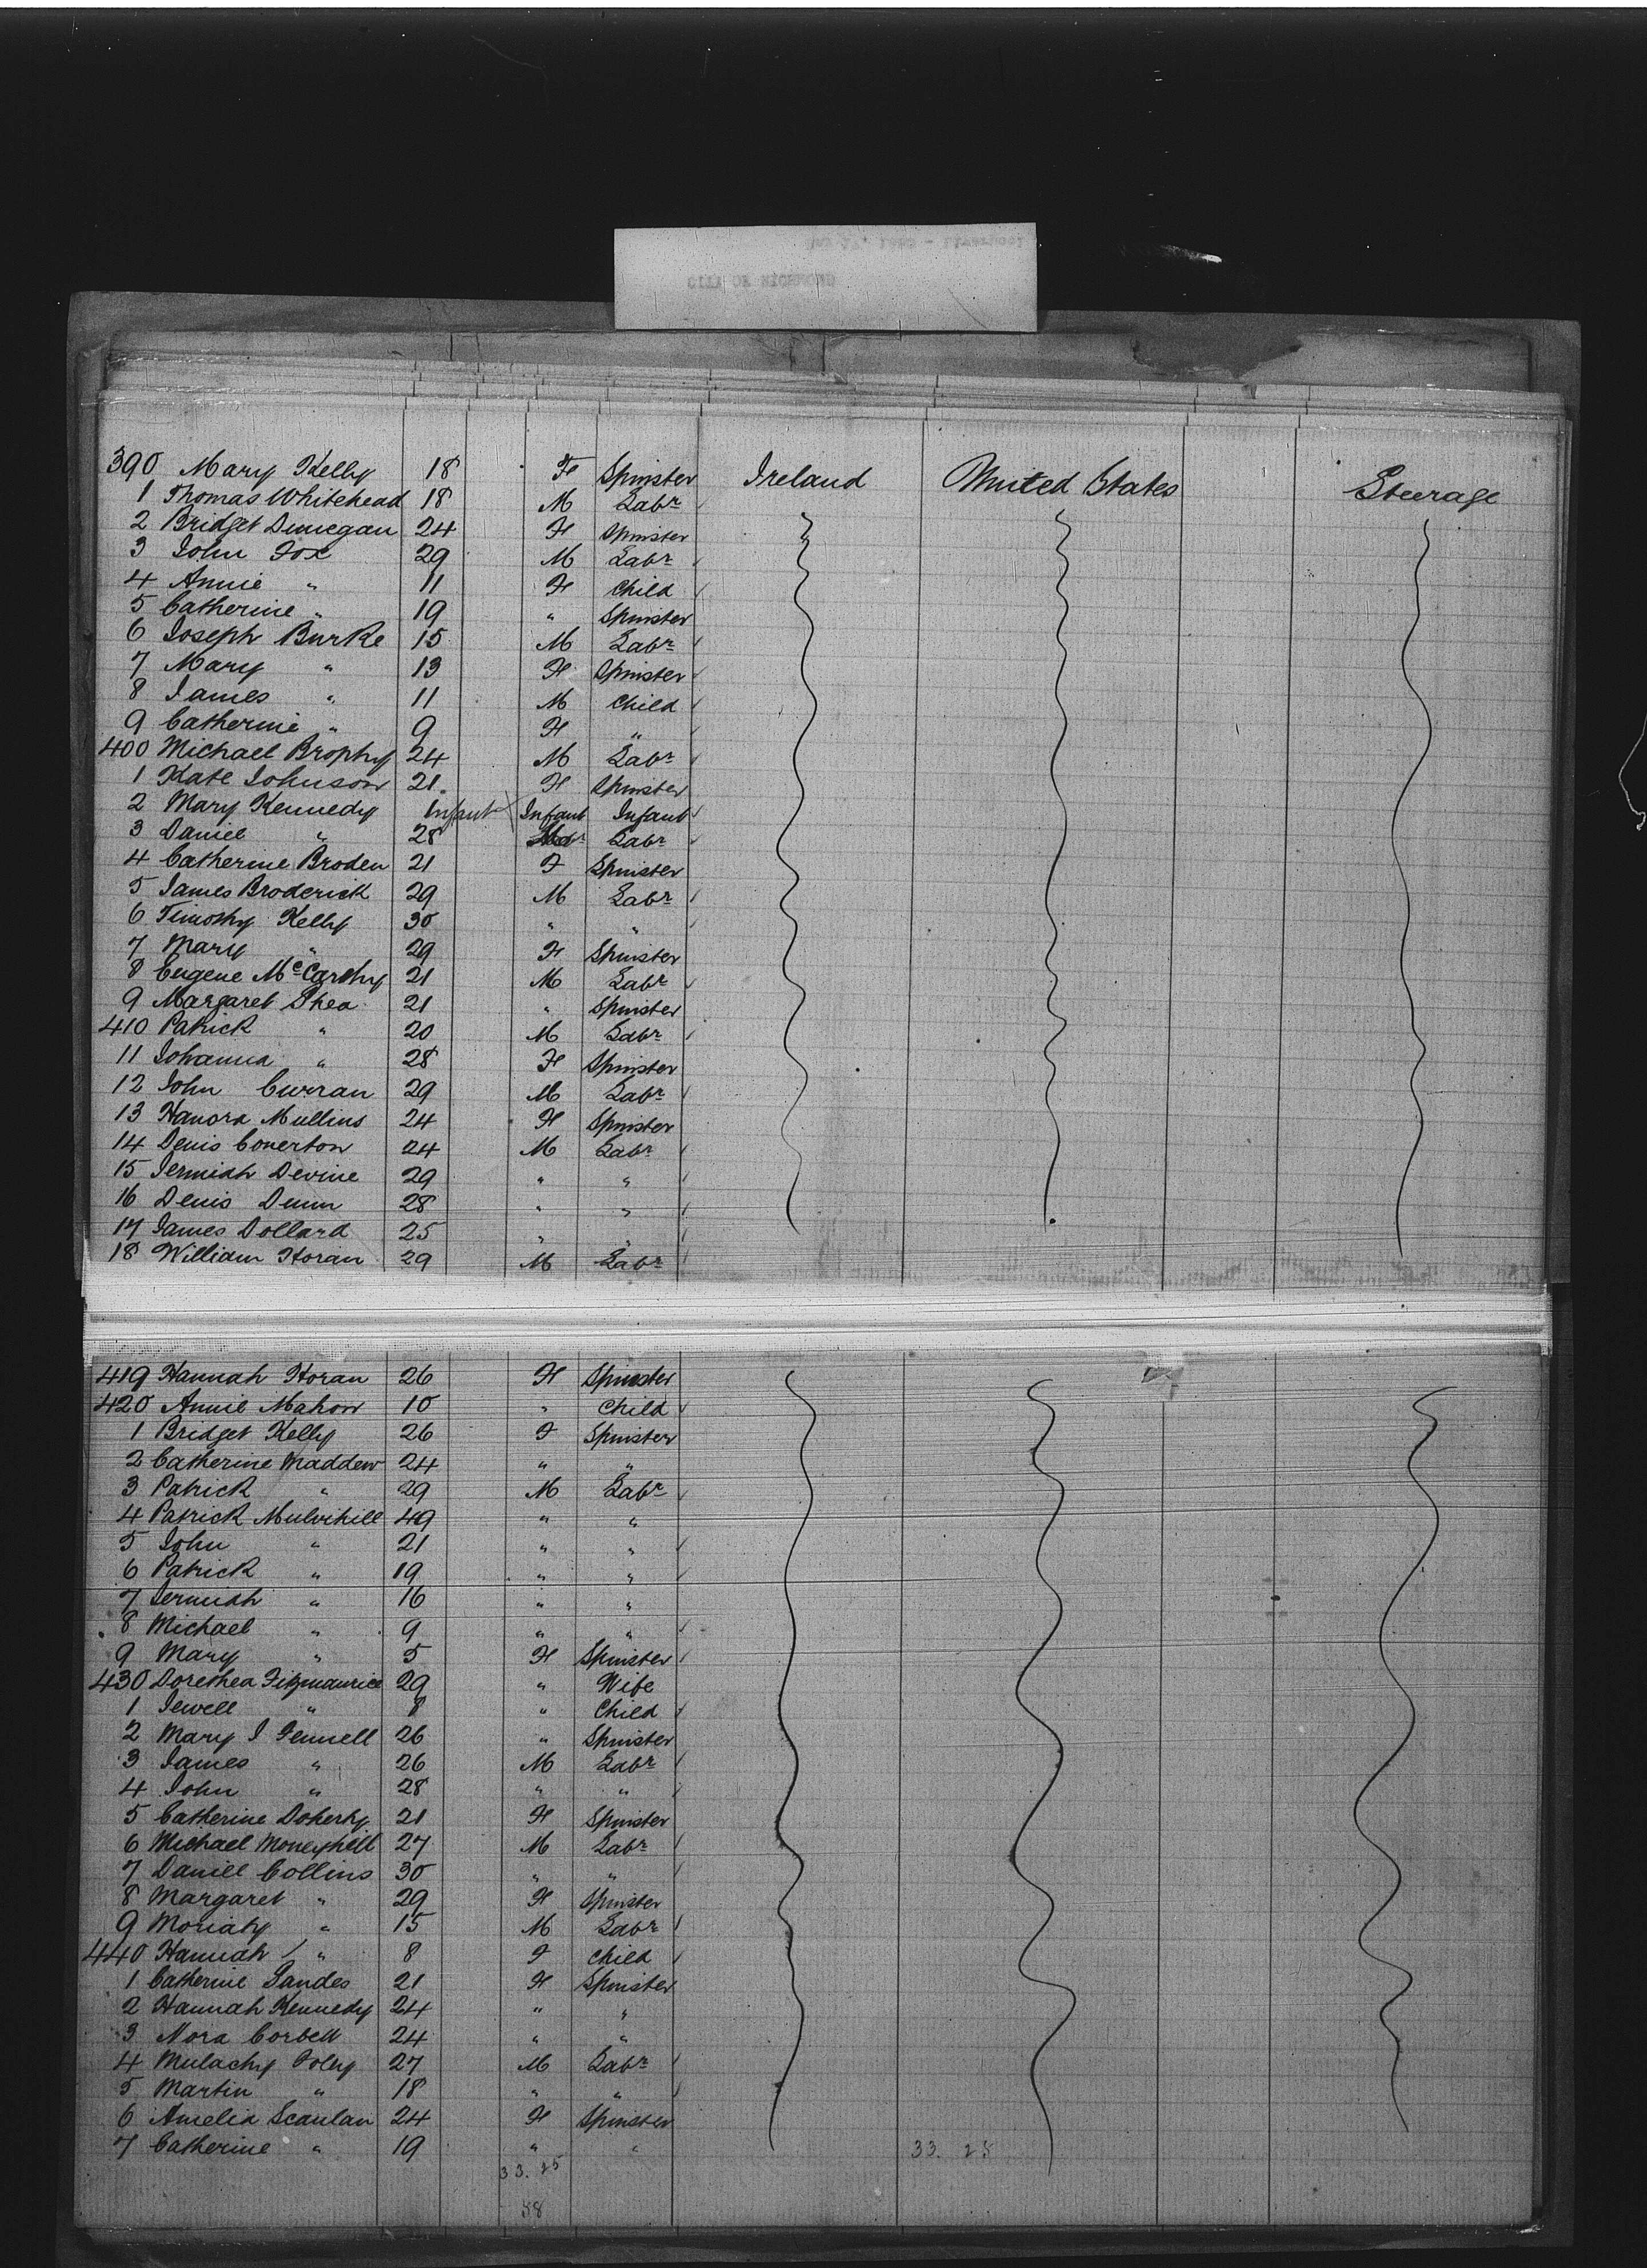 390 Mary Kelly 18 F Spinster Ireland United States Steerage
1 Thomas Whitehead 18 M Labr
2 Bridget Dunegan 24 F Spinster
3 John Fox 29 M Labr
4 Annie " 11 F Child
5 Catherine " 19 " Spinster
6 Joseph Burke 15 M Labr
7 Mary " 13 F Spinster
8 James " 11 M Child
9 Catherine " 9 F "
400 Michael Brophy 24 M Labr
1 Kate Johnson 21 F Spinster
2 Mary Kennedy Infant Infant Infant
3 Daniel " 28 Labr
4 Catherine Broden 21 F Spinster
5 James Broderick 29 M Labr
6 Timothy Kelly 30 " "
7 Mary " 29 F Spinster
8 Eugene McCarthy 21 M Labr
9 Margaret Shea 21 " Spinster
410 Patrick " 20 M Labr
11 Johanna " 28 F Spinster
12 John Curran 29 M Labr
13 Hanora Mullins 24 F Spinster
14 Denis Conerton 24 M Labr
15 Jermiah Devine 29 " "
16 Denis Dunn 28 " "
17 James Dollard 25 " "
18 William Horan 29 M Labr
419 Hannah Horan 26 F Spinster
420 Annie Mahon 10 " Child
1 Bridget Kelly 26 F Spinster
2 Catherine Madden 24 " "
3 Patrick " 29 M Labr
4 Patrick Mulvihill 49 " "
5 John " 21 " "
6 Patrick " 19 " "
7 Jermiah " 16 " "
8 Michael " 9 " "
9 Mary " 5 F Spinster
430 Dorethea Fitzmaurice 29 " Wife
1 Jewell " 8 " Child
2 Mary J Fennell 26 " Spinster
3 James " 26 M Labr
4 John " 28 " "
5 Catherine Doherty 21 F Spinster
6 Michael Moneyhill 27 M Labr
7 Daniel Collins 30 " "
8 Margaret " 29 F Spinster
9 Moriaty " 15 M Labr
440 Hannah " 8 F Child
1 Catherine Sandes 21 F Spinster
2 Hannah Kennedy 24 " "
3 Nora Corbett 24 " "
4 Mulachy Foley 27 M Labr
5 Martin " 18 " "
6 Amelia Scanlan 24 F Spinster
7 Catherine " 19 " "
33. 25 33. 25
58